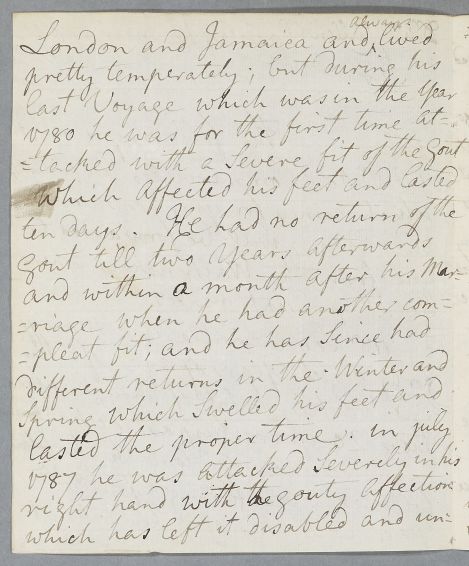 always
London and Jamaica and lived
pretty temperately; but during his
last Voyage which was in the Year
1780 he was for the first time at-
=tacked with a Severe fit of the Gout
which affected his feet and lasted
ten days. He had no return of the
Gout till two Years afterwards
and within a month after his Mar-
=riage when he had another com=
=pleat fit; and he has Since had
different returns in the Winter and
Spring which Swelled his feet and
lasted the proper time. in july
1787 he was attacked Severely in his
right hand with the gouty affection
which has left it disabled and un=